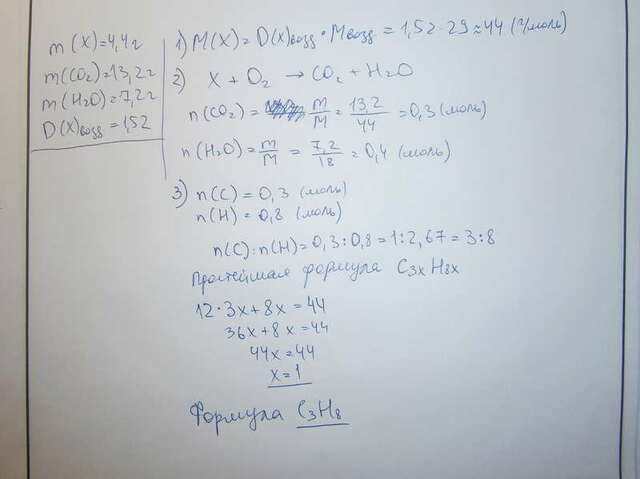 m(X)=4,4г
m(CO₂)=13,2г
m(H₂O)=7,2г
D(X)возд = 1,52
1) M(X) = D(X)возд · Mвозд = 1,52 · 29 ≈ 44 (г/моль)
2) X + O₂ → CO₂ + H₂O
n(CO₂) = m/M = 13,2/44 = 0,3 (моль)
n(H₂O) = m/M = 7,2/18 = 0,4 (моль)
3) n(C) = 0,3 (моль)
n(H) = 0,8 (моль)
n(C):n(H) = 0,3:0,8 = 1:2,67 = 3:8
Простейшая формула C₃ₓH₈ₓ
12·3x+8x=44
36x+8x=44
44x=44
x=1
Формула C₃H₈